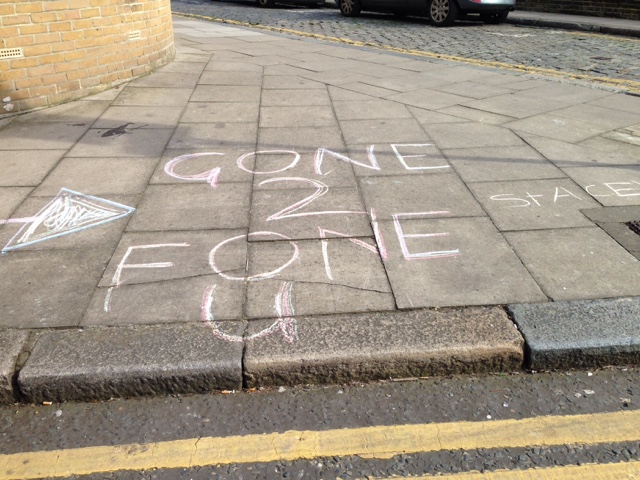 GONE
2
StACE
FONE
U